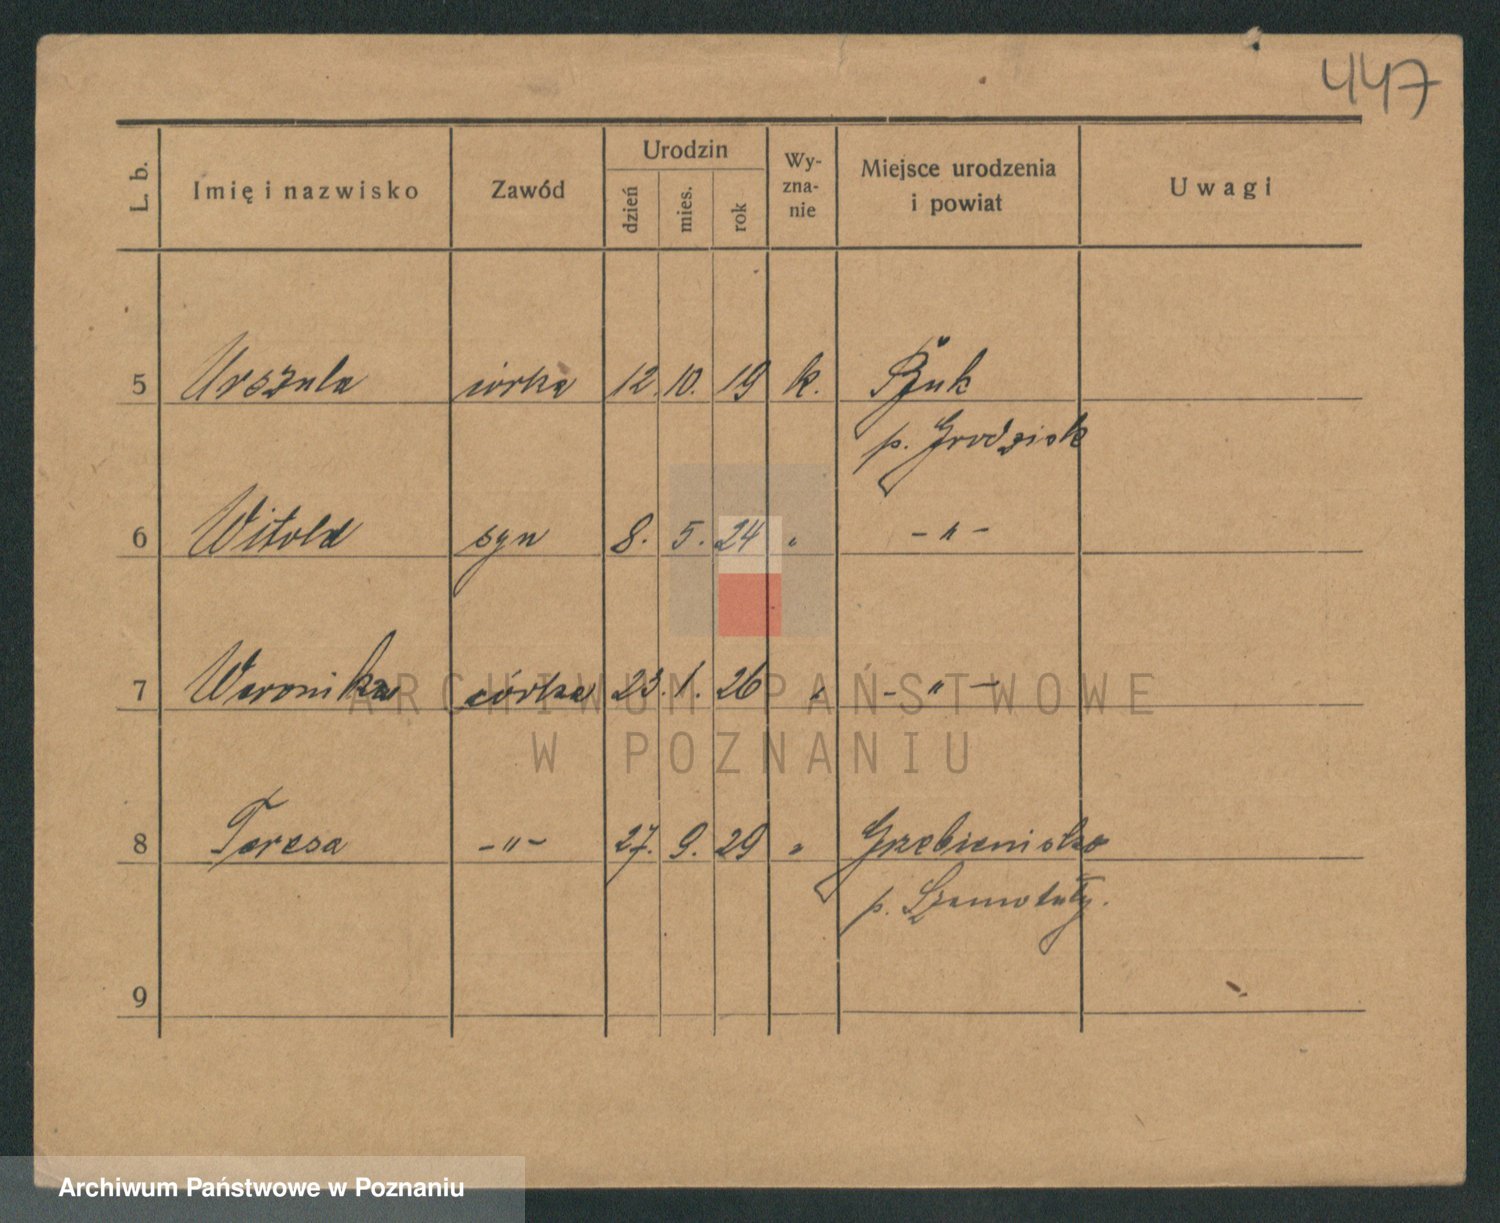 447
L. b. Imię i nazwisko Zawód Urodzin dzień mies. rok Wy-zna-nie Miejsce urodzenia i powiat Uwagi
5 Urszula córka 12. 10. 19 k. Buk
p. Grodzisk
6 Witold syn 8. 5. 24 " -"-
7 Weronika córka 23. 1. 26 " -"-
ARCHIWUM PAŃSTWOWE
W POZNANIU
8 Teresa -"- 27. 9. 29 " Grzebienisko
p. Szamotuły.
9
Archiwum Państwowe w Poznaniu